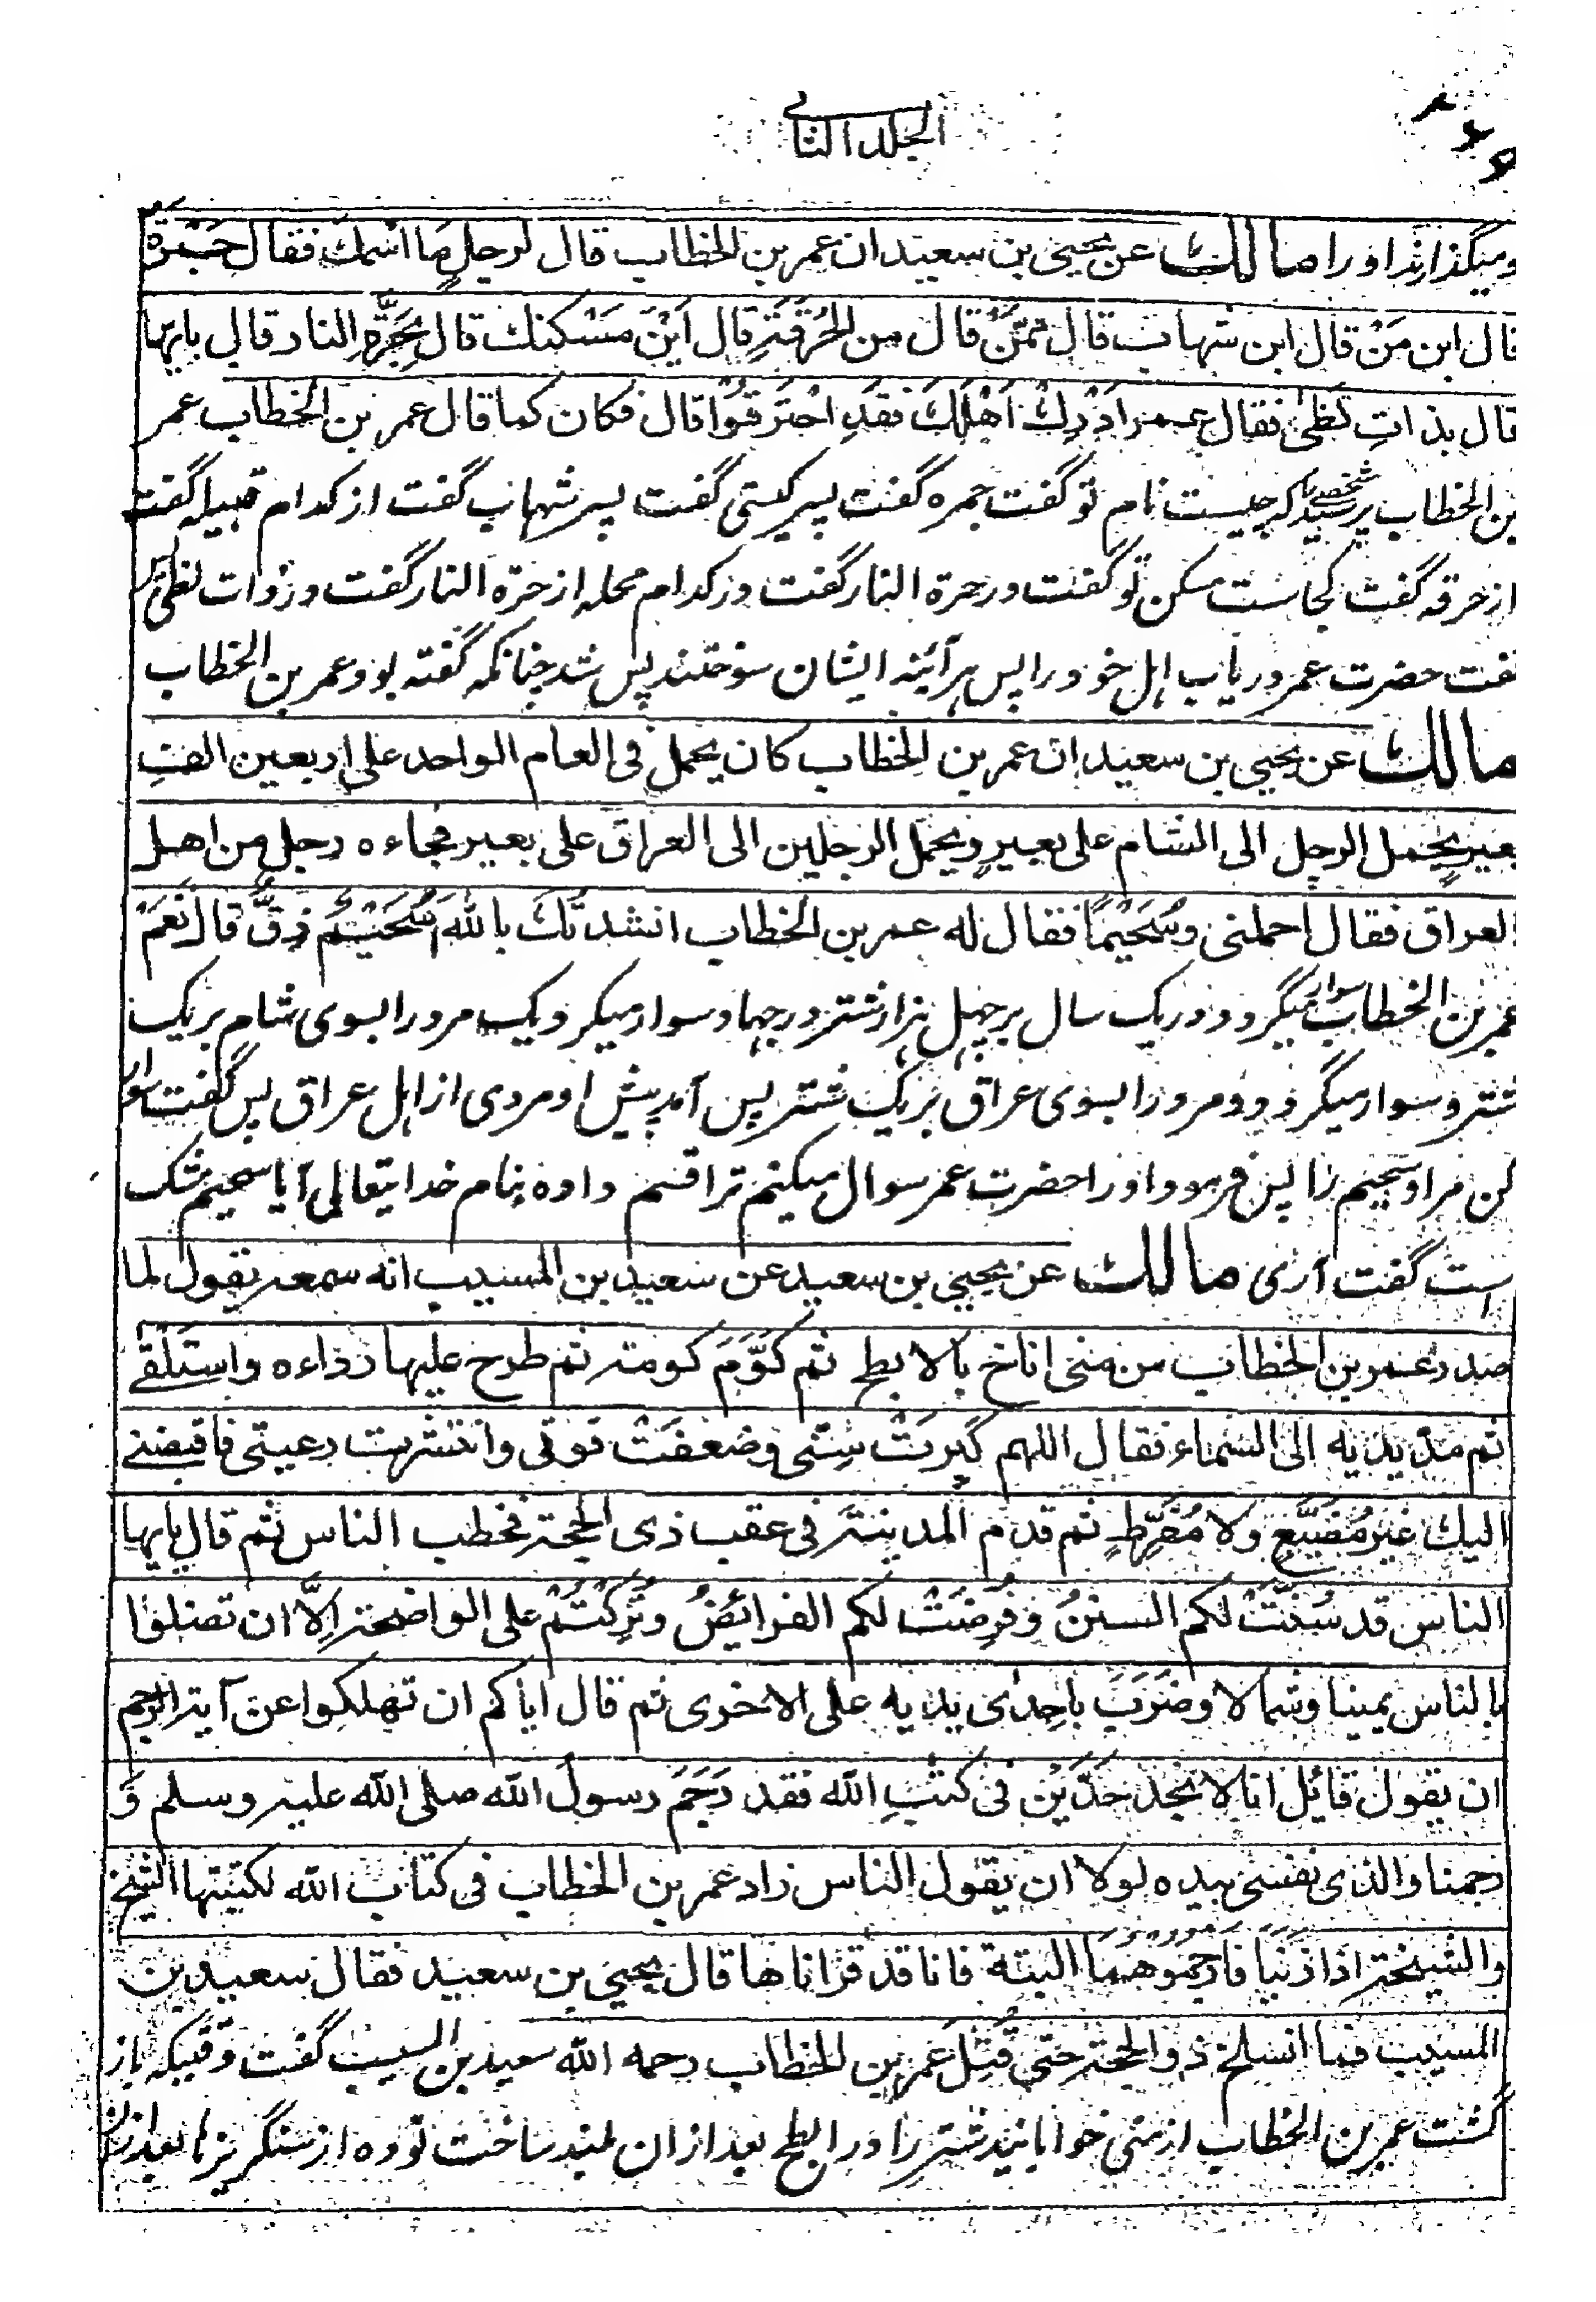 الجلد الثانی
ومیگذارند اورا مالك عن یحیی بن سعید ان عمر بن الخطاب قال لرجلٍ مَا اسْمك فقال جَمْرَة
قال ابن مَنْ قال ابن شهاب قال مِمَّنْ قال من الحُرَقَةِ قال اَیْنَ مَسْكنك قال بِحَرَّةِ النار قال بایها
قال بذاتِ لَظٰی فقال عمر اَدْرِكْ اَهْلَكَ فقدِ احْتَرقُوْا قال فكان كما قال عمر بن الخطاب عمر
بن الخطاب پرسید شخصی را که چیست نام تو گفت جمره گفت پسر کیستی گفت پسر شهاب گفت از کدام قبیله گفت
از حرقه گفت کجاست مسکن تو گفت در حرة النار گفت در کدام محله از حرّة النار گفت در ذات لظی پس
گفت حضرت عمر دریاب اہل خود را پس ہر آئینه ایشان سوختند پس شد چنانکه گفته بود عمر بن الخطاب
مالك عن یحیی بن سعید ان عمر بن الخطاب كان یحمل فی العام الواحد علی اربعین الفِ
بعیرٍ یحمل الرجل الی الشام علی بعیرٍ ویحمل الرجلین الی العراق علی بعیر فجاءه رجل من اهل
العراق فقال احملنی وسُحَیْمًا فقال له عمر بن الخطاب انشدتك بالله اَسُحَیْمٌ زِقٌّ قال نَعَمْ
عمر بن الخطاب سوار میکرد در یک سال بر چہل ہزار شتر در جہاد سوار میکرد یک مرد را بسوی شام بر یک
شتر و سوار میکرد دو مرد را بسوی عراق بر یک شتر پس آمد پیش او مردی از اہل عراق پس گفت سوار
کن مرا و سحیم را پس فرمود اورا حضرت عمر سوال میکنم ترا قسم داده بنام خدایتعالی آیا سحیم مشک
است گفت آری مالك عن یحیی بن سعید عن سعید بن المسیب انه سمعه یقول لما
صدر عمر بن الخطاب من منی اناخ بالابطح ثم كَوَّمَ كومة ثم طرح علیها رداءه واستَلْقٰے
ثم مدّ یدیه الی السماء فقال اللهم كَبِرَتْ سِنّی وضعفَتْ قوتی وانتشرت رعیتی فاقبضنے
الیك غیر مُضَیِّعٍ ولا مُفَرِّطٍ ثم قدم المدینة فی عقب ذی الحجة فخطب الناس ثم قال یایها
الناس قد سُنَّتْ لكم السننُ وفُرِضَتْ لكم الفرائِضُ وتُرِكْتُمْ علی الواضحة اِلَّا ان تضلوا
بالناس یمینا وشمالا وضَرَبَ باِحدٰی یدیه علی الاخری ثم قال ایاكم ان تهلكوا عن آیة الرجم
ان یقول قائل انا لا نجد حَدَّیْن فی كتٰبِ الله فقد رَجَمَ رسول الله صلی الله علیه وسلم وَ
رجمنا والذی نفسی بیده لولا ان یقول الناس زاد عمر بن الخطاب فی كتاب الله لكتبتها الشیخ
والشیخة اذا زَنَیَا فَارْجُمُوْهُمَا البتة فانا قد قرأناها قال یحیی بن سعید فقال سعید بن
المسیب فما انسلخ ذوالحجة حتی قُتِلَ عمر بن الخطاب رحمه الله سعید بن المسیب گفت وقتیکه باز
گشت عمر بن الخطاب از منی خوابانید شتر را در ابطح بعد ازان بلند ساخت توده از سنگریزها بعد ازان